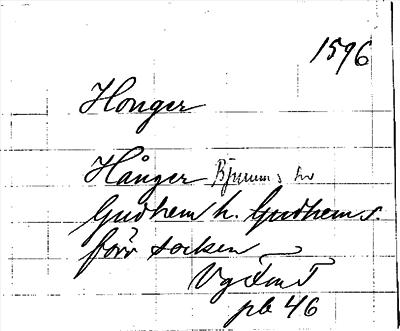 1596
Honger
Hånger Bjurums hd
Gudhem h. Gudhem s.
förr socken
Vg Fm T
pb 46